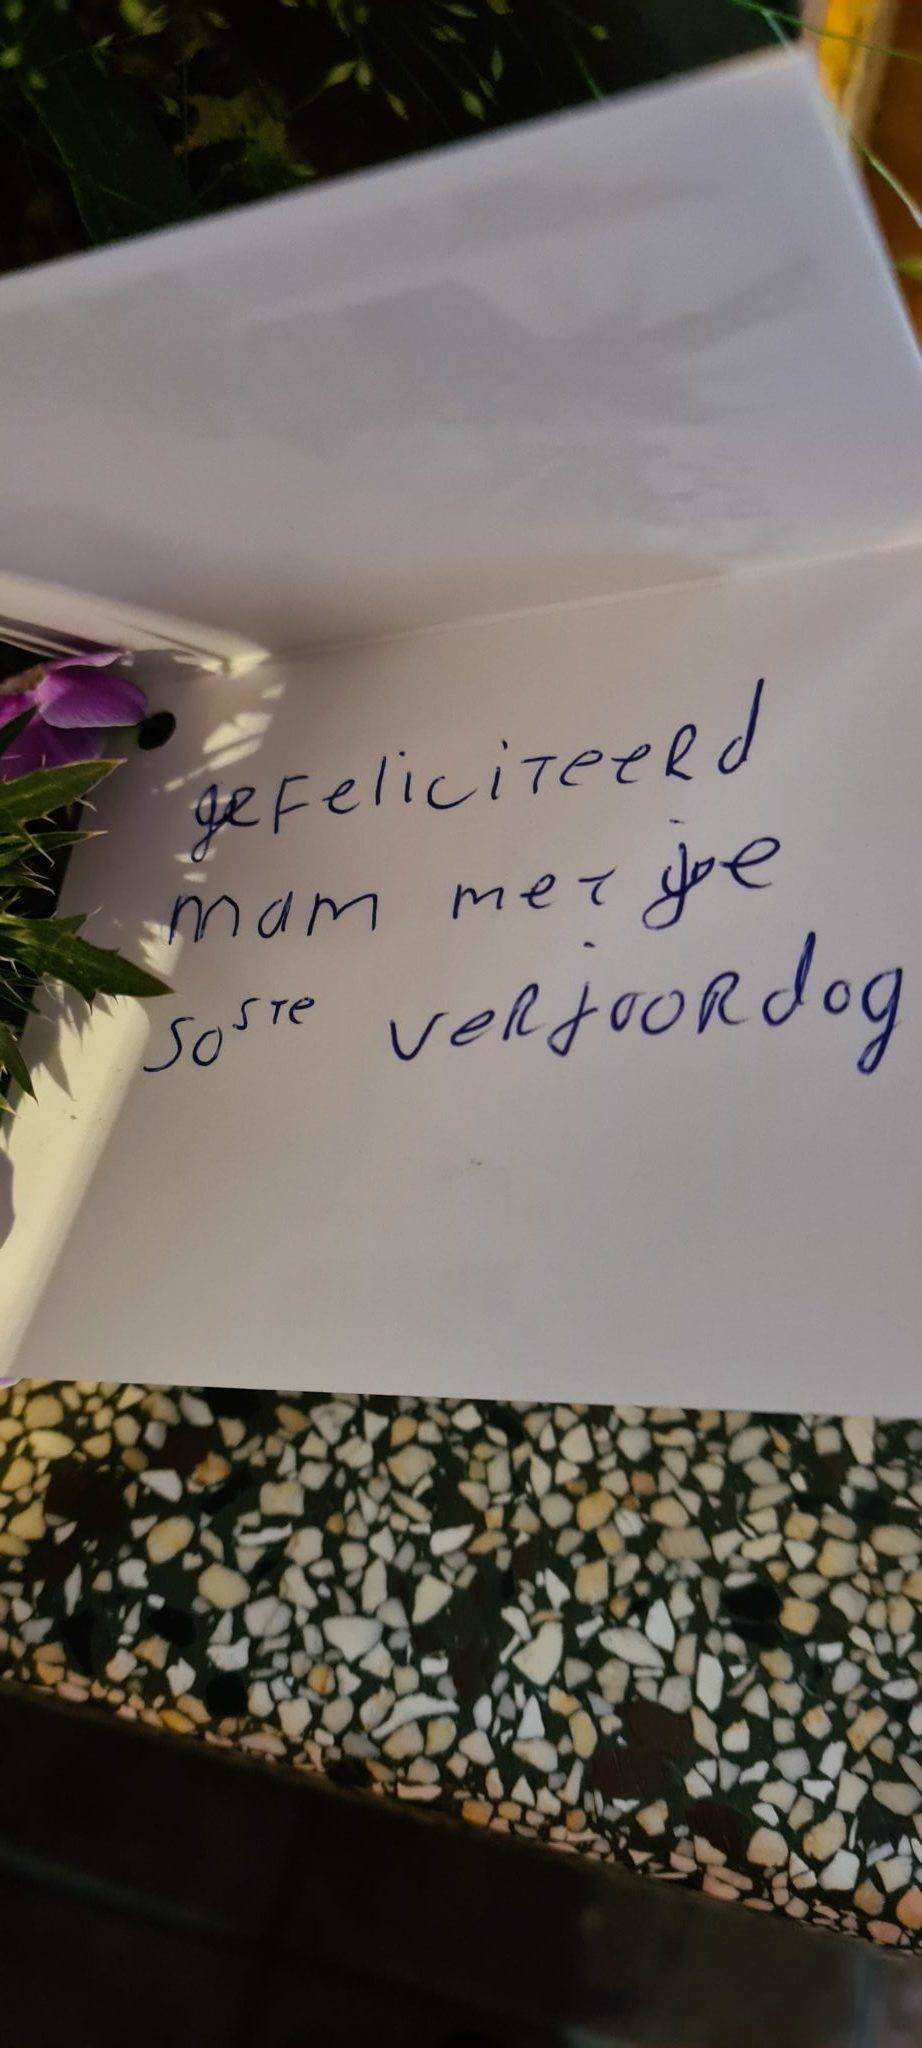 gefeliciteerd
mam met je
50ste verjaardag